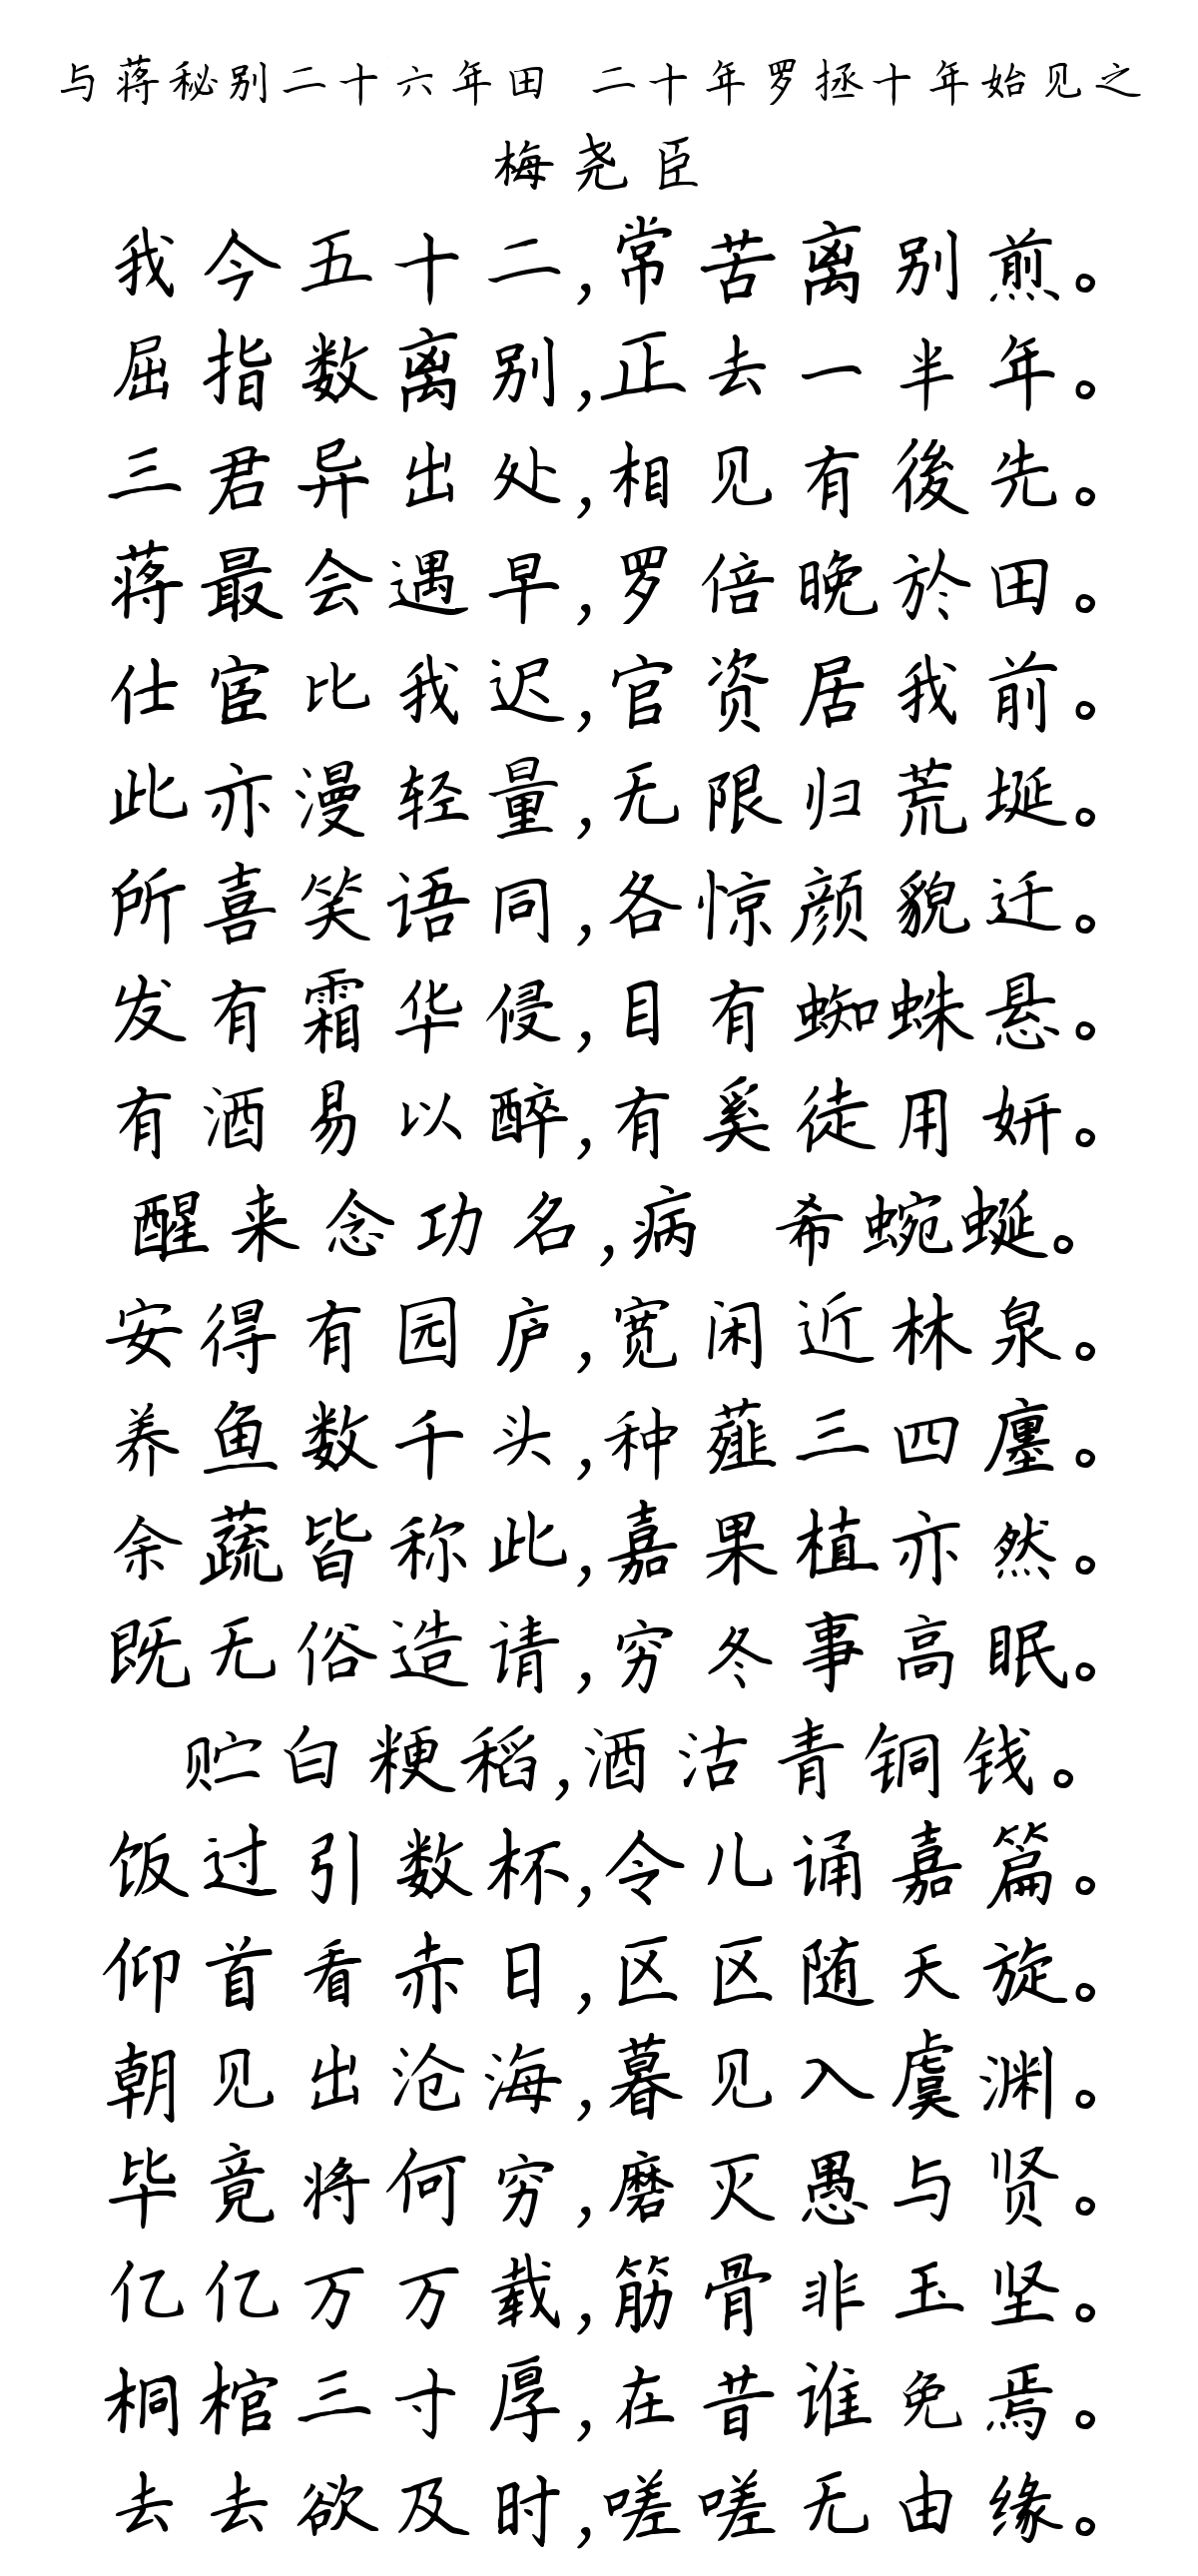 与蒋秘别二十六年田 二十年罗拯十年始见之
梅尧臣
我今五十二,常苦离别煎。
屈指数离别,正去一半年。
三君异出处,相见有後先。
蒋最会遇早,罗倍晚於田。
仕宦比我迟,官资居我前。
此亦漫轻量,无限归荒埏。
所喜笑语同,各惊颜貌迁。
发有霜华侵,目有蜘蛛悬。
有酒易以醉,有奚徒用妍。
醒来念功名,病 希蜿蜒。
安得有园庐,宽闲近林泉。
养鱼数千头,种薤三四廛。
余蔬皆称此,嘉果植亦然。
既无俗造请,穷冬事高眠。
贮白粳稻,酒沽青铜钱。
饭过引数杯,令儿诵嘉篇。
仰首看赤日,区区随天旋。
朝见出沧海,暮见入虞渊。
毕竟将何穷,磨灭愚与贤。
亿亿万万载,筋骨非玉坚。
桐棺三寸厚,在昔谁免焉。
去去欲及时,嗟嗟无由缘。